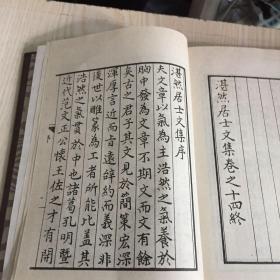 湛然居士文集卷之十四終
湛然居士文集序
夫文章以氣為主浩然之氣養於
胸中發為文章不期文而文有餘
矣古之君子其文見於簡策宏深
渾厚言近而旨遠辭約而義深非
後世以雕篆為工者所能比蓋其
浩然之氣貫於中也諸葛孔明暨
近代范文正公懷王佐之才有開